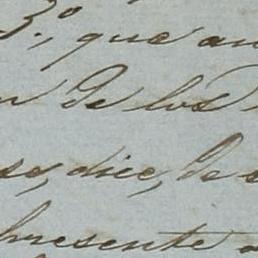 3.º, que an
de los
se, dice, de
presente